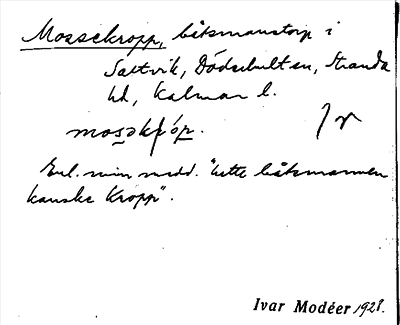 Mossekropp, båtsmanstorp i
Saltvik, Döderhultsn, Stranda
hd, Kalmar l.
Enl. min medd. "hette båtsmannen
kanske Kropp".
Ivar Modéer 1928.